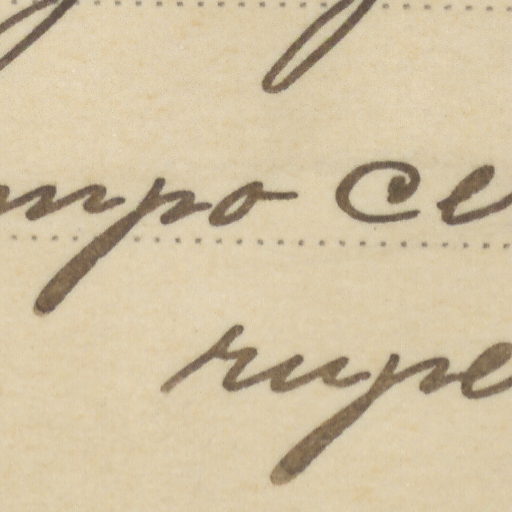 mpo ce
rupe